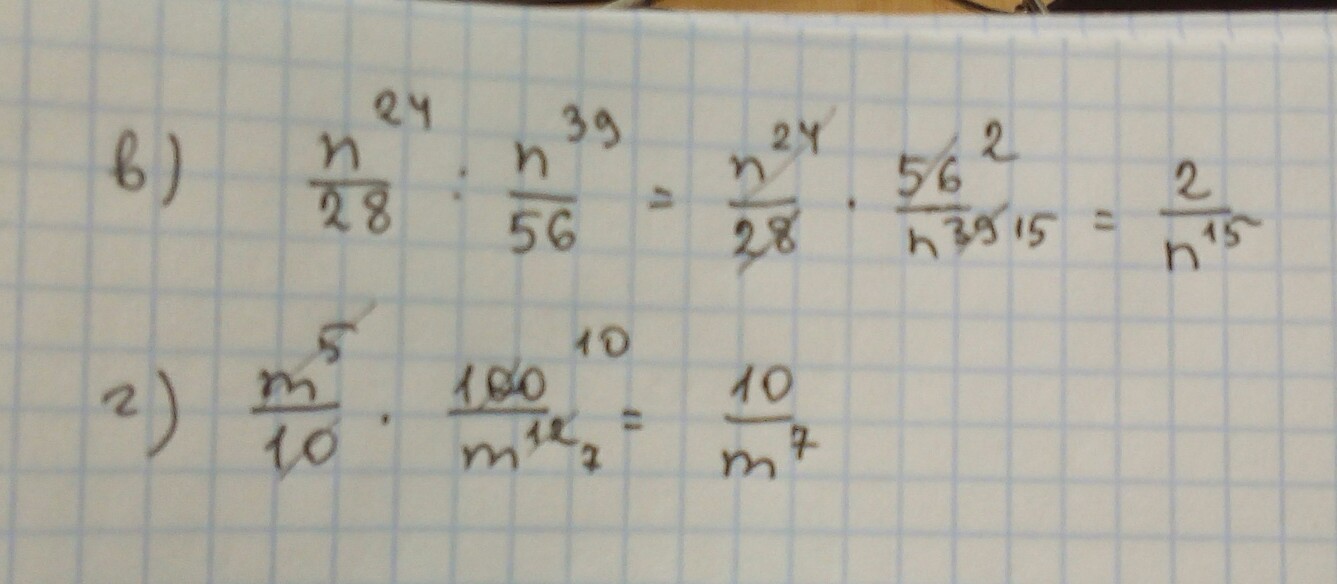 в) n^24/28 : n^39/56 = n^24/28 · 56 2/n^39 15 = 2/n^15
г) m^5/10 · 100 10/m^12 7 = 10/m^7